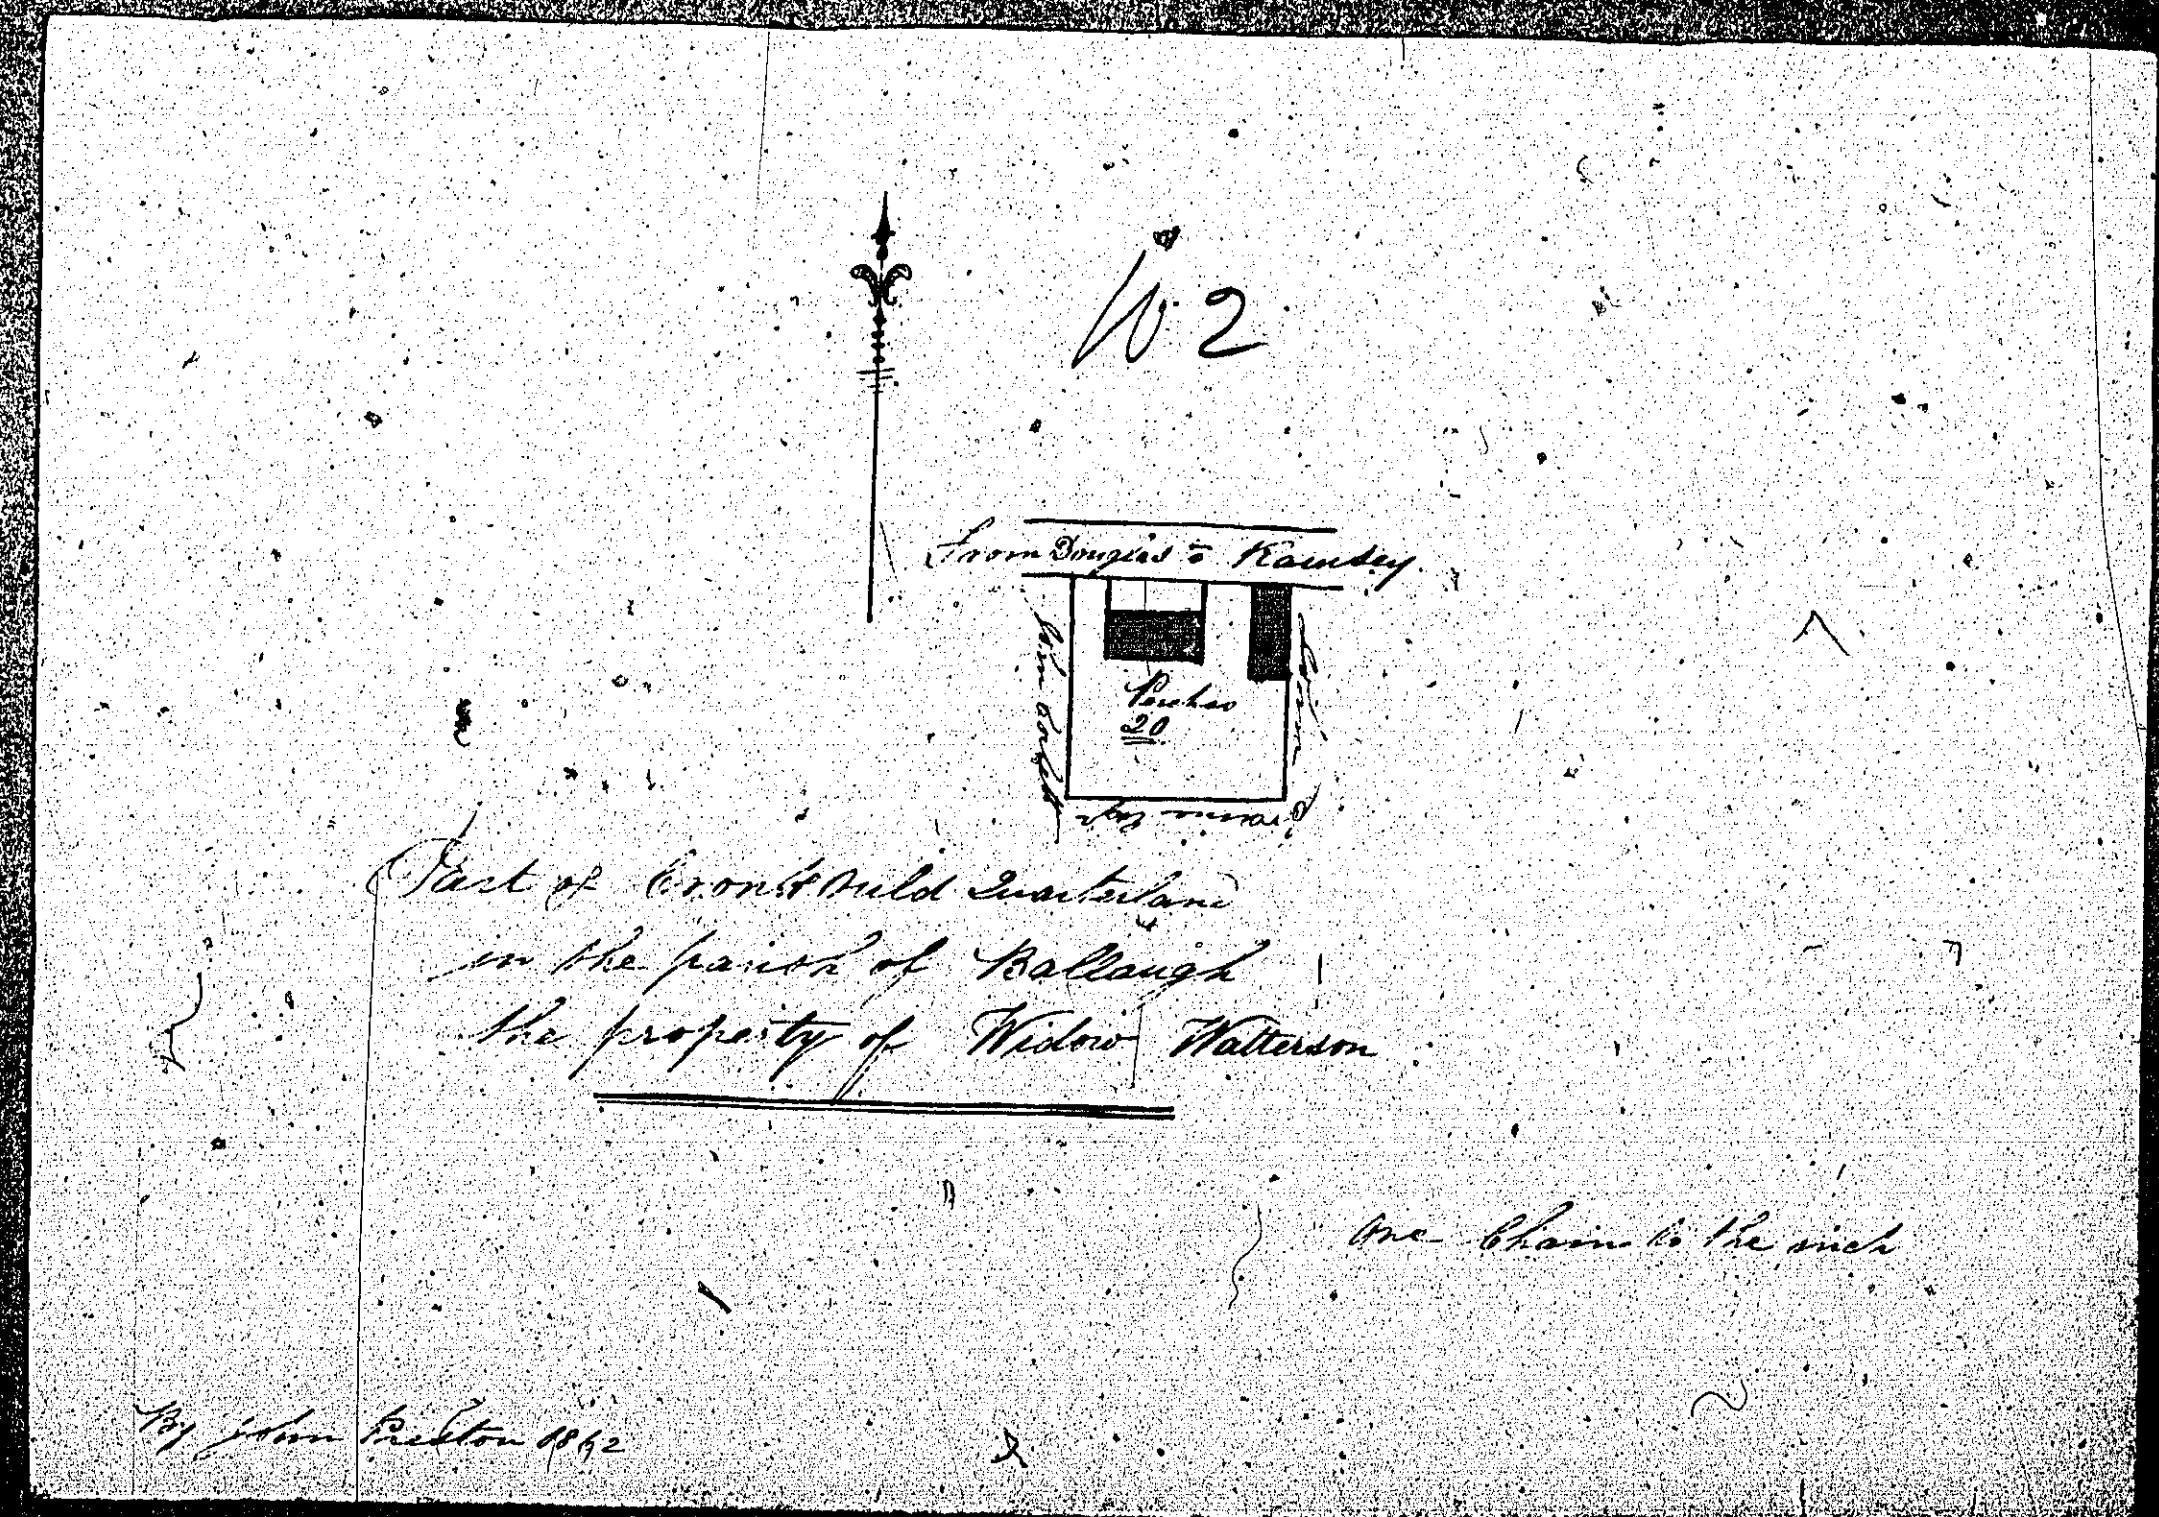 W. 2
From Douglas to Ramsey
Wm Corlett
Perches
20
Part of Cronk Ould Quarterland
in the parish of Ballaugh
the property of Widow Watterson
One Chain to the inch
By John Preston 1862